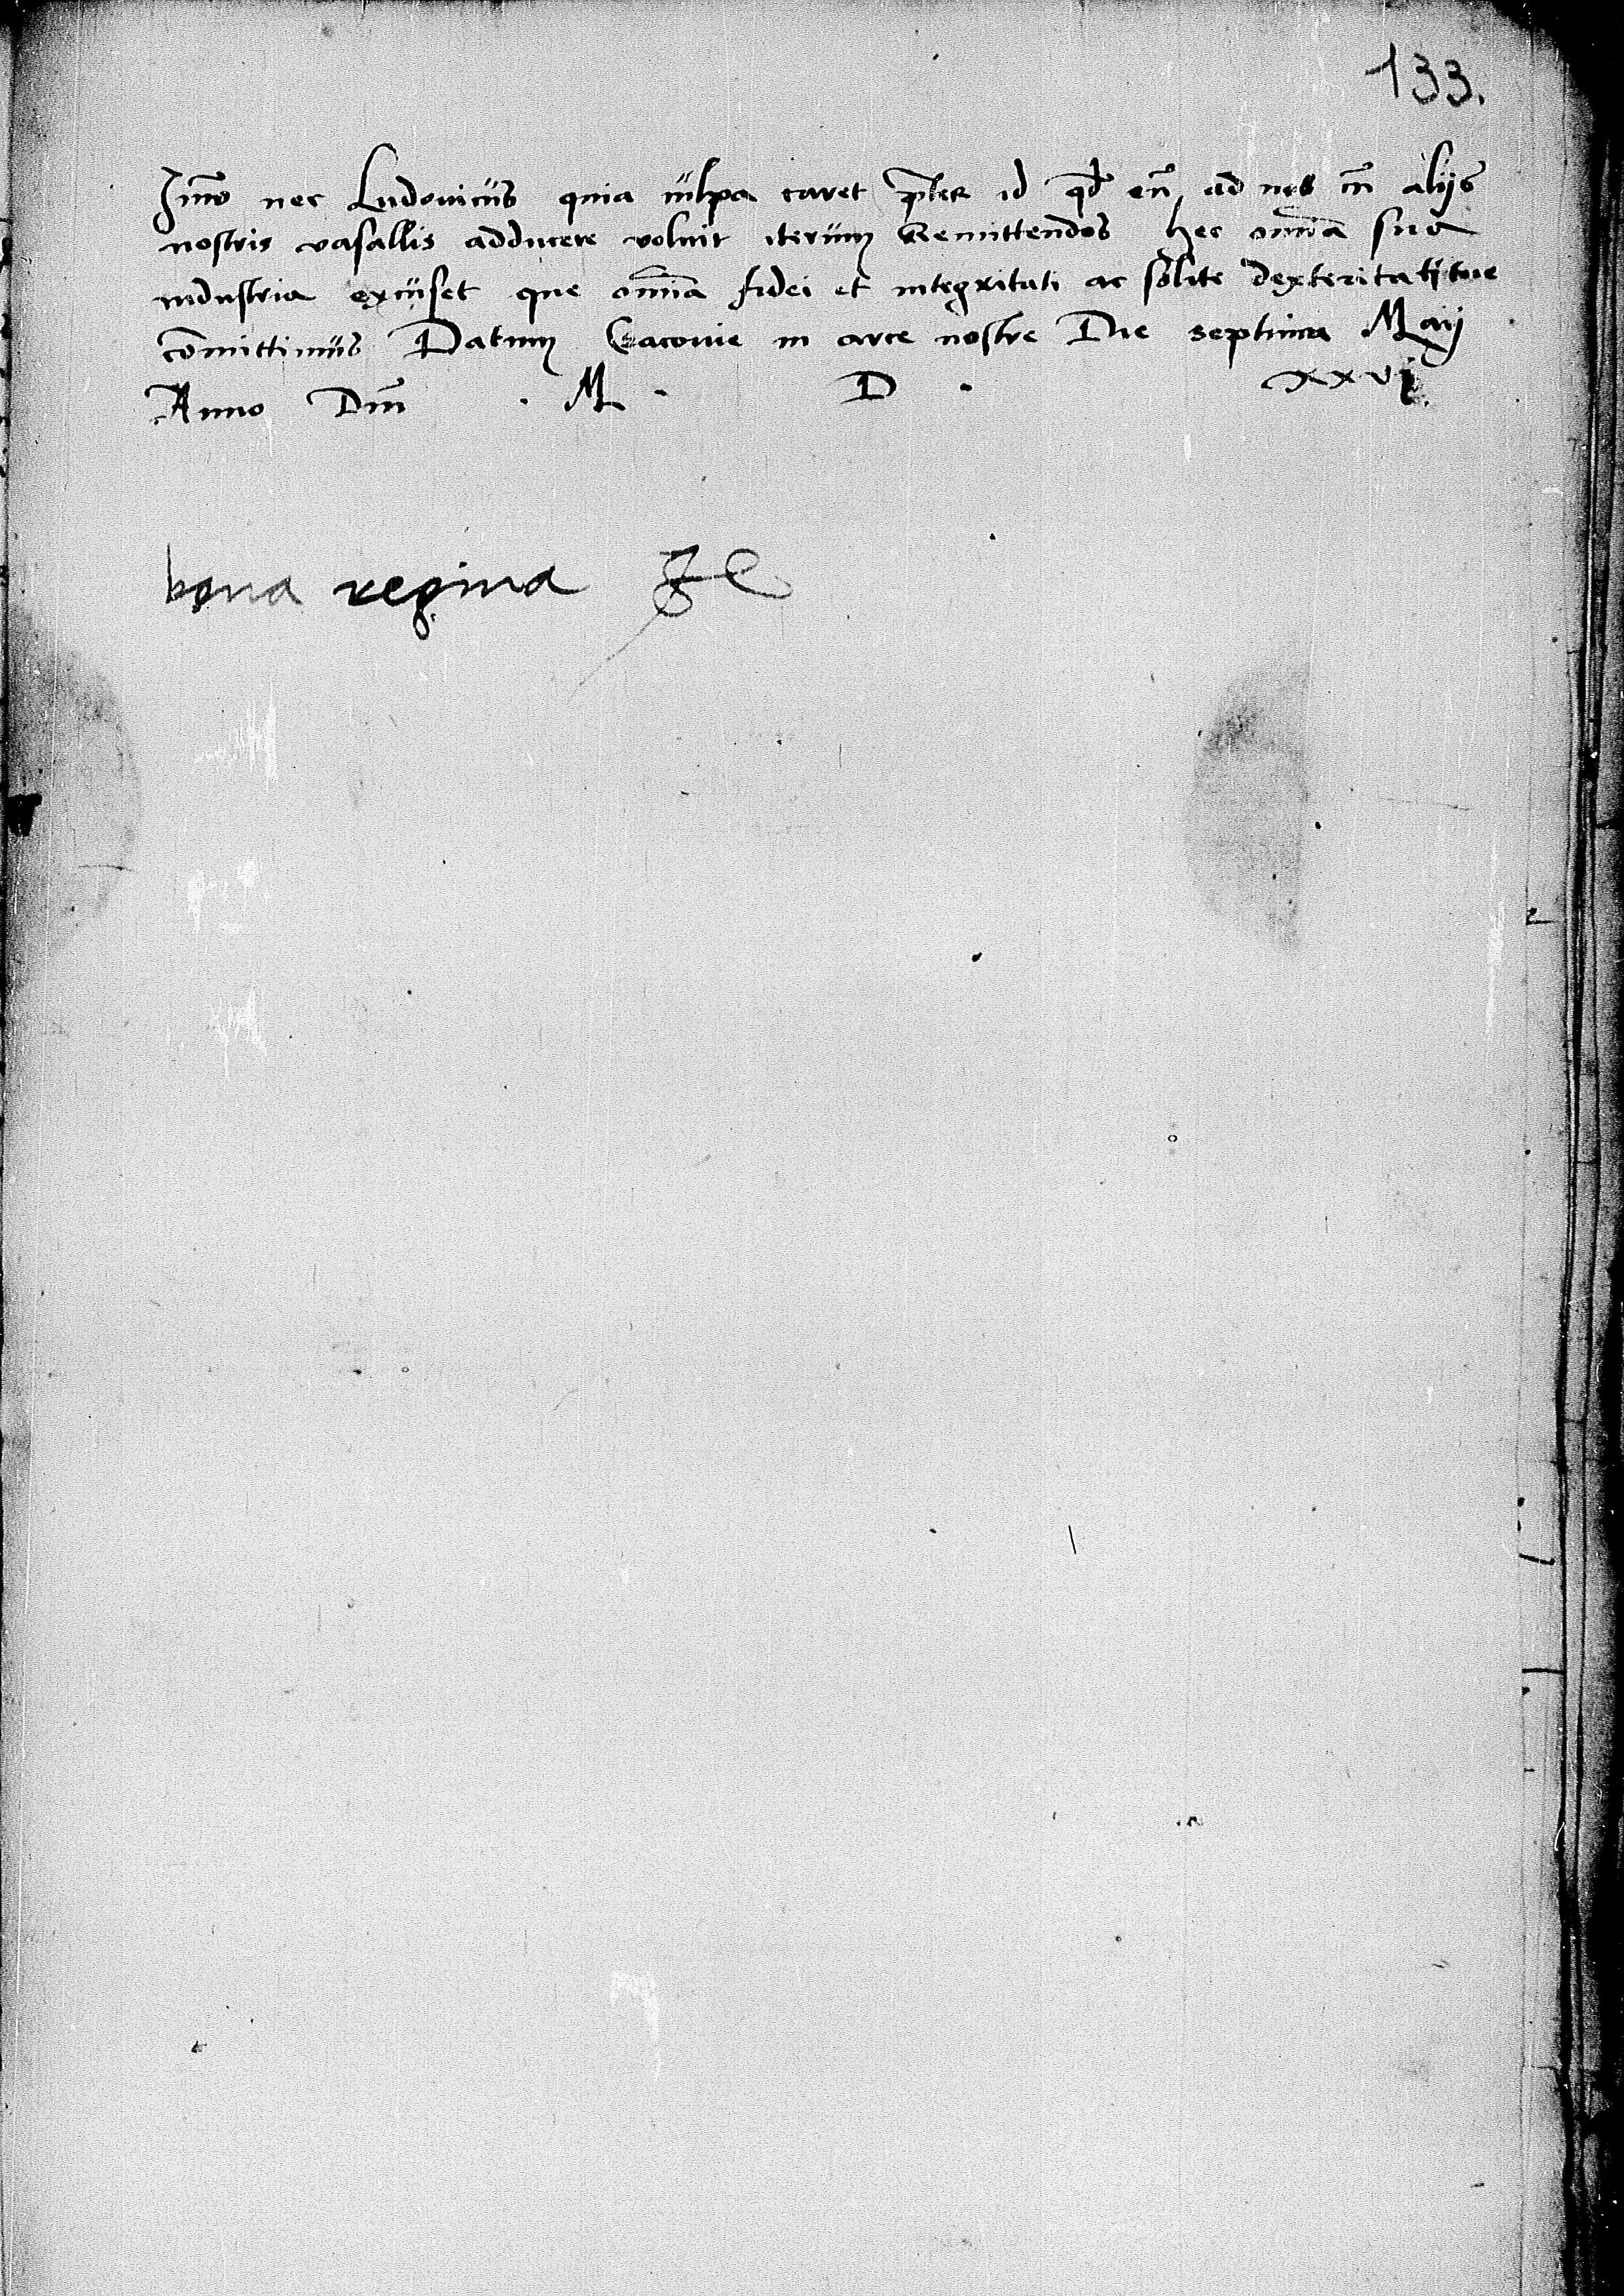 133.
Imo nec Ludovicus quia culpa caret p̄ter id qđ eū ad nos cū aliis
nostris vasallis adducere voluit iterum Remittendos hec omnia sua
industria excuset que omnia fidei et integritati ac solite dexteritati tue
cōmittimus Datum Cracovie in arce nostre Die septima Maij
Anno Dm̄ . M . D . xxvi.
bona regina